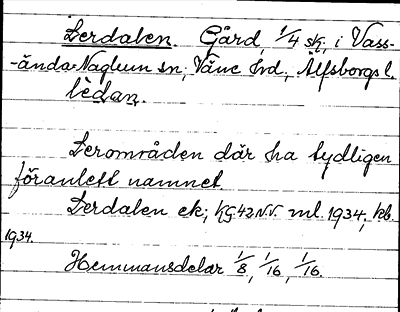 Lerdalen. Gård, 1/4 sk, i Väss-
-ända-Naglum sn, Väne hd, Älfsborgs l.
lèdan.
Lerområden där ha tydligen
föranlett namnet.
Lerdalen ek; KG42NV. ml. 1934, kb.
1934.
Hemmansdelar 1/8, 1/16, 1/16.